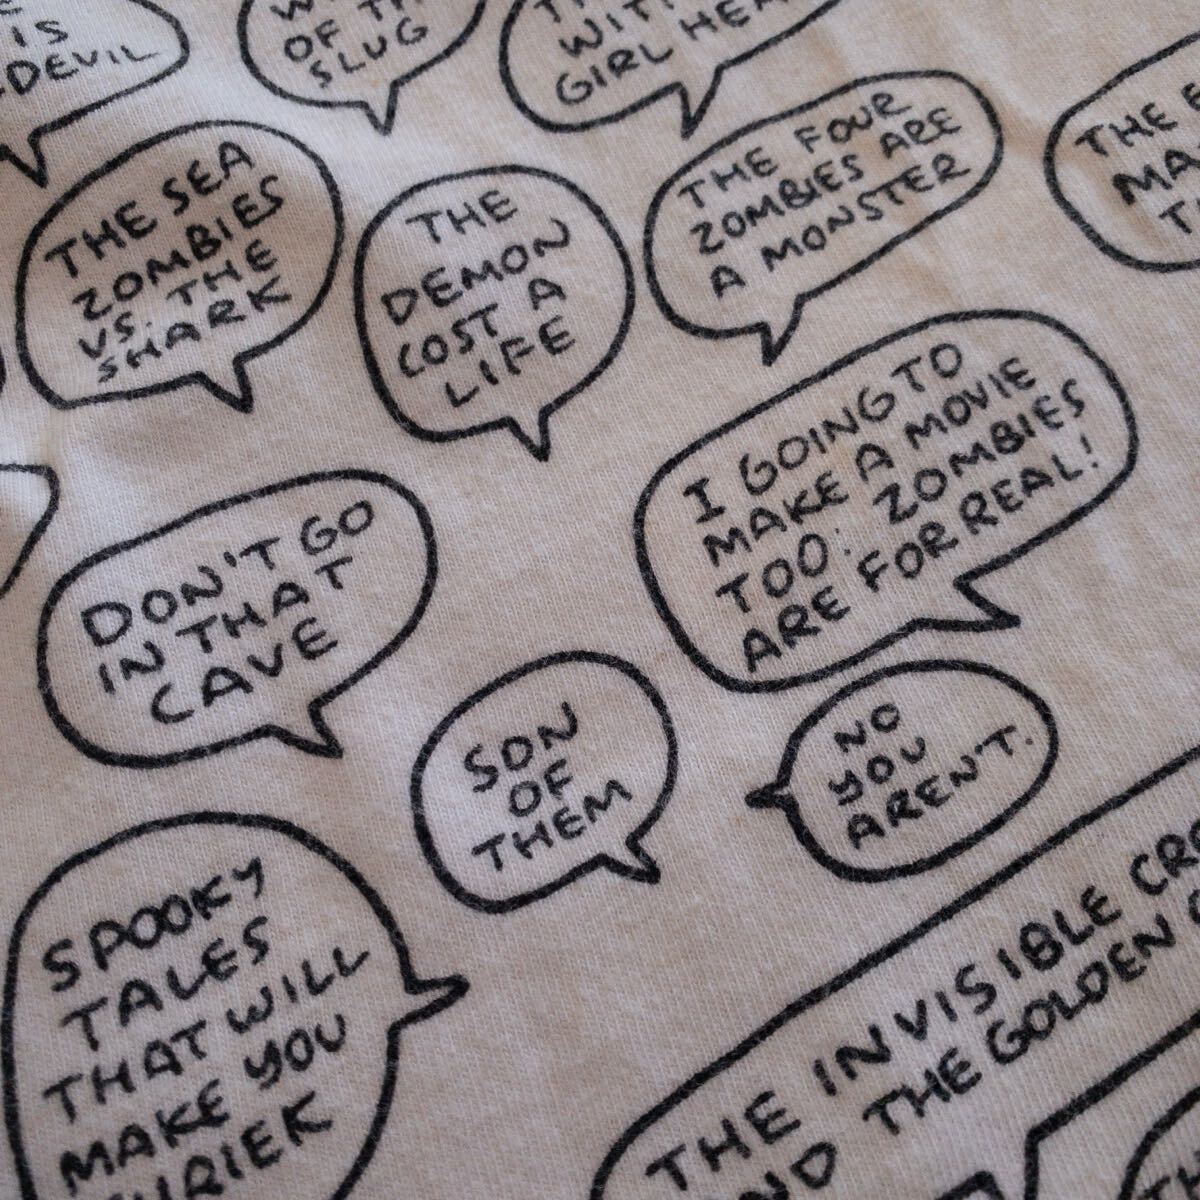 IS
DEVIL
OF
SLUG
GIRL
THE SEA
ZOMBIES
VS. THE
SHARK
THE
DEMON
COST A
LIFE
THE FOUR
ZOMBIES ARE
A MONSTER
THE
I GOING TO
MAKE A MOVIE
TOO: ZOMBIES
ARE FOR REAL!
DON'T GO
IN THAT
CAVE
SON
OF
THEM
NO
YOU
AREN'T.
SPOOKY
TALES
THAT WILL
MAKE YOU
THE INVISIBLE
THE GOLDEN